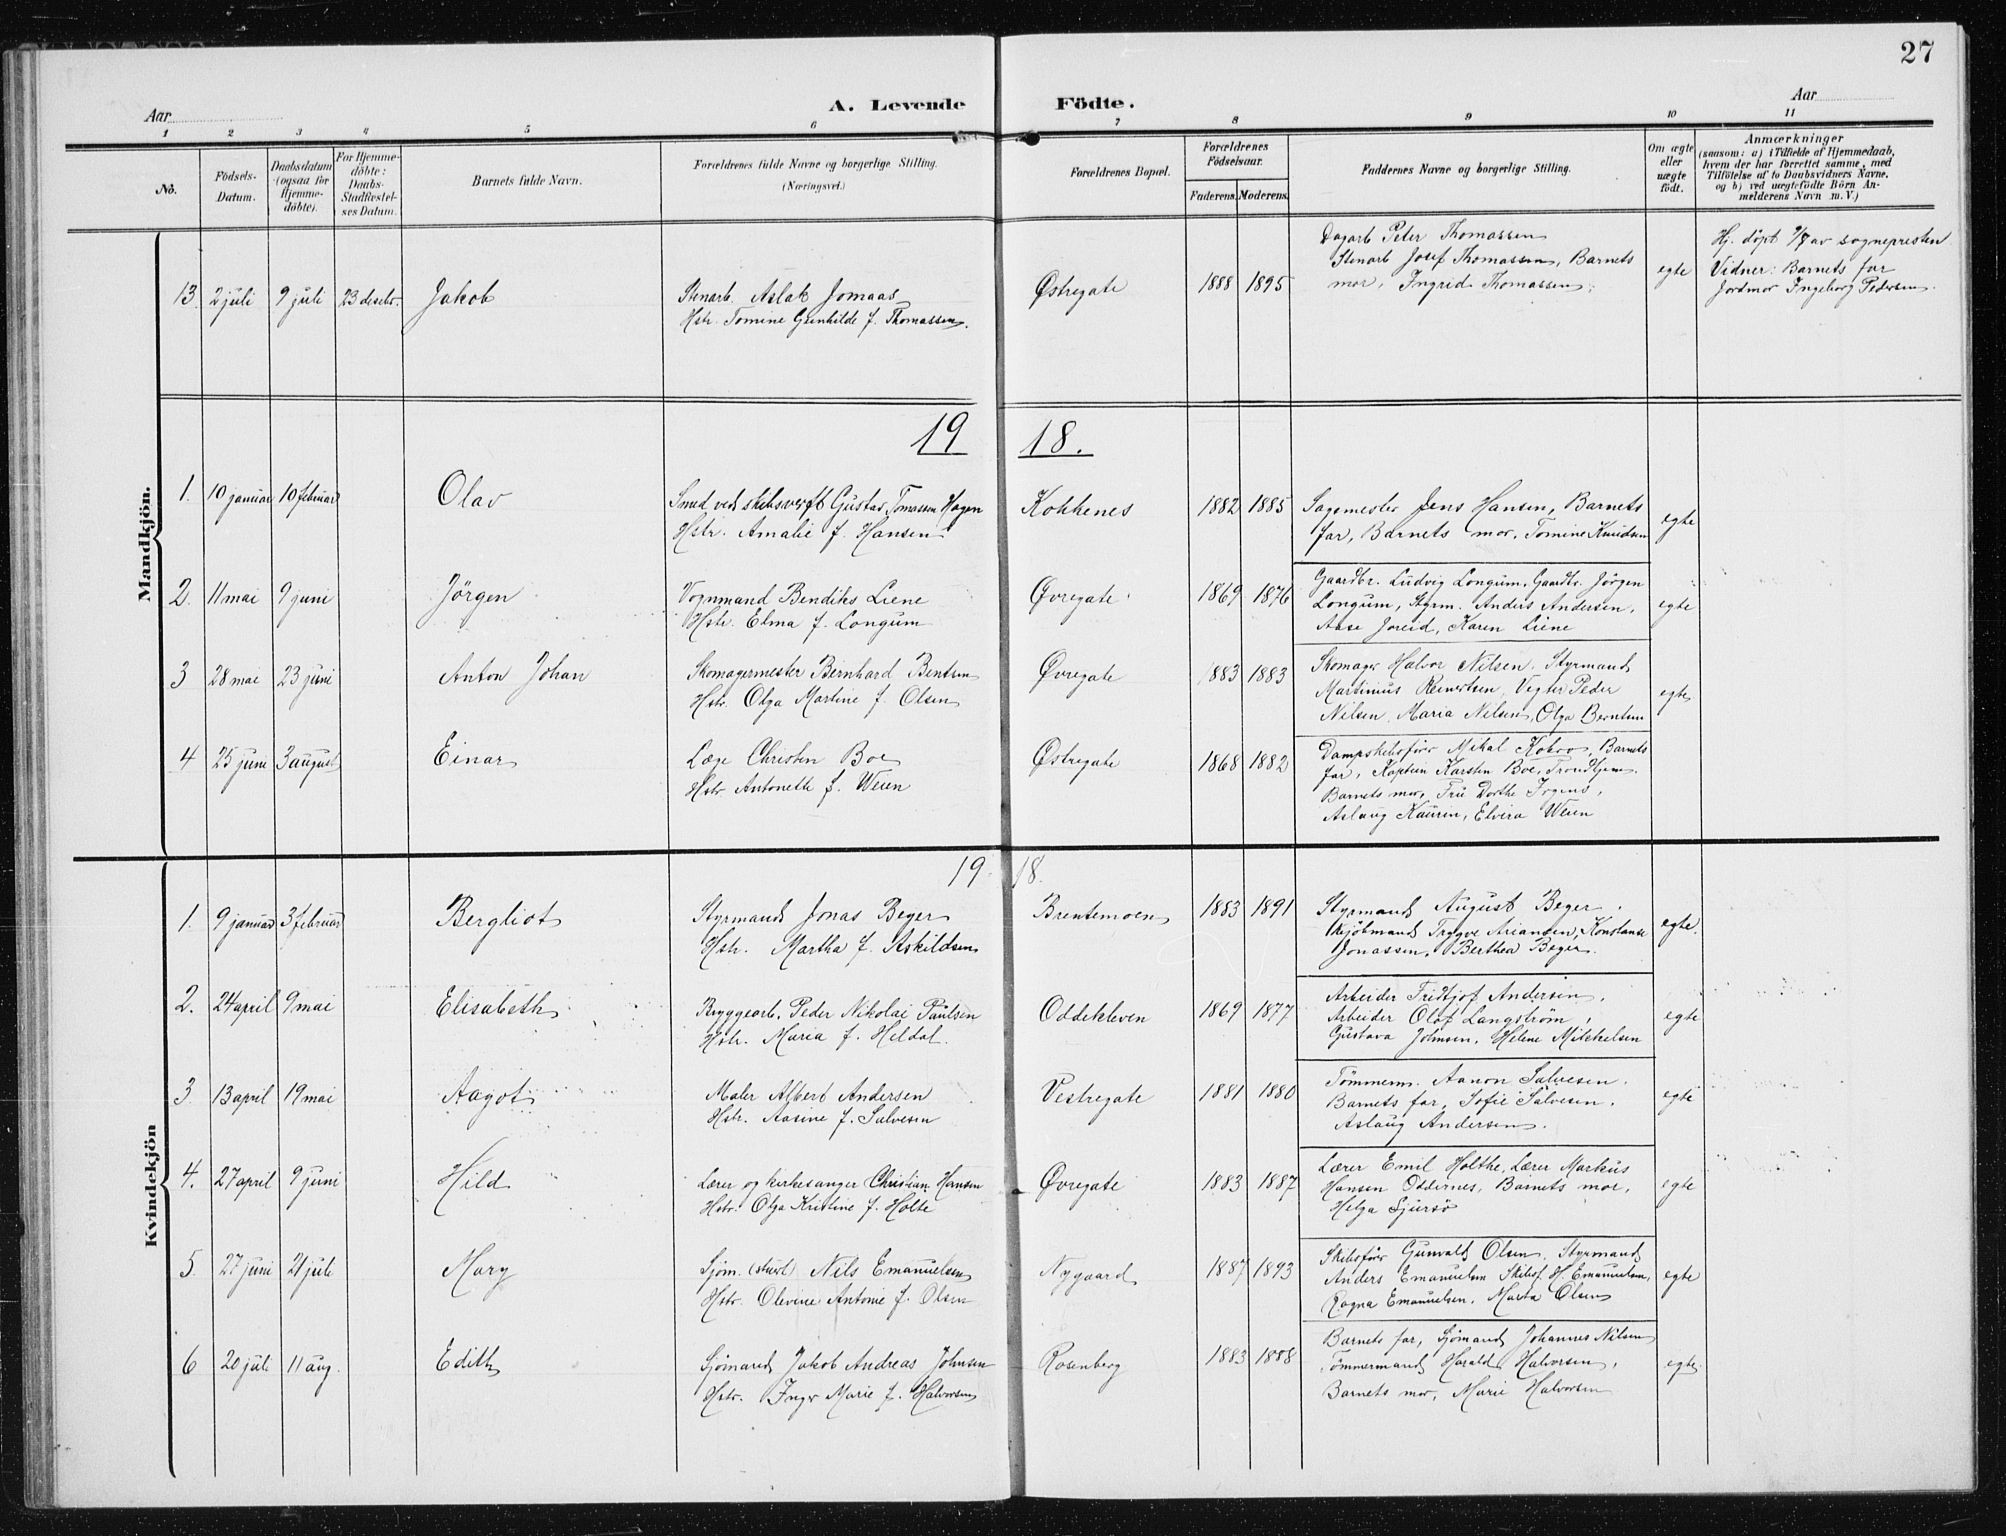 27
Aar
A. Levende Födte.
Aar
1 2 3 4 5 6 7 8 9 10 11
No.
Födsels-
Datum.
Daabsdatum
(ogsaa for
Hjemme-
döbte).
For Hjemme-
döbte:
Daabs-
Stadfæstel-
ses Datum.
Barnets fulde Navn.
Forældrenes fulde Navne og borgerlige Stilling.
(Næringsvei.)
Forældrenes Bopæl.
Forældrenes
Födselsaar.
Faderens. Moderens.
Faddernes Navne og borgerlige Stilling.
Om ægte
eller
uægte
födt.
Anmærkninger
(saasom: a) i Tilfælde af Hjemmedaab,
hvem der har forrettet samme, med
Tilföielse af to Daabsvidners Navne,
og b) ved uægtefödte Börn An-
melderens Navn m. V.)
Mandkjön.
13. 2 juli 9 juli 23 decbr. Jakob
Stenarb. Aslak Jomaas
Hstr. Tomine Gunhilde f. Thomassen.
Østregate 1888 1895
Dagarb Peter Thomassen
Stenarb Josef Thomassen, Barnets
mor, Ingrid Thomassen.
egte
Hj. døpt 9/7 av sognepresten
Vidner: Barnets far
Jordmor Ingeborg Pedersen.
19 18.
1. 10 januar 10 februar Olav
Smed ved skibsverft Gustav Tomassen Hagen
Hstr. Amalie f. Hansen
Kokkenes 1882 1885
Sagmester Jens Hansen, Barnets
far, Barnets mor, Tomine Knudsen
egte
2. 11 mai 9 juni Jörgen
Vognmand Bendiks Liene
Hstr. Elma f. Longum
Øvregate 1869 1876
Gaardbr. Ludvig Longum, Gaardbr. Jörgen
Longum, Styrm. Anders Andersen,
Aase Joreid, Karen Liene
egte
3 28 mai 23 juni Anton Johan
Skomagermester Bernhard Bentsen
Hstr. Olga Martine f. Olsen
Øvregate 1883 1883
Skomager Halvor Nilsen, Styrmand
Martinius Reinertsen, Vegter Peder
Nilsen, Maria Nilsen, Olga Berntsen
egte
4 25 juni 3 august Einar
Læge Christen Boe
Hstr. Antonette f. Weien
Østregate 1868 1882
Dampskibsfører Mikal, Barnets
far, Kaptein Karsten Boe, Trondhjem.
Barnets mor, Fru Dorthe Irgens,
Aslaug Kaurin, Elvira Weien
19 18.
Kvindekjön
1. 9 januar 3 februar Bergliot
Styrmand Jonas Beger
Hstr. Martha f. Askildsen
Brentemoen 1883 1891
Styrmand August Beger.
Kjøbmand Trygve Ariansen, Konstanse
Jonassen, Berthea Beger.
egte.
2. 24 april 9 mai Elisabeth
Bryggearb. Peder Nikolai Paulsen
Hstr. Maria f. Heldal.
Oddekleven 1869 1877
Arbeider Fridtjof Andersen,
Arbeider Olof Langström,
Gustava Johnsen, Helene Mikkelsen
egte
3 13 april 19 mai Aagot
Maler Albert Andersen
Hstr. Aasine f. Salvesen
Vestregate 1881 1880
Tömmerm. Aanon Salvesen.
Barnets far, Sofie Salvesen.
Aslaug Andersen.
egte
4. 27 april 9 juni Hild
Lærer og kirkesanger Christian Hansen
Hstr. Olga Kristine f. Holte
Øvregate 1883 1887
Lærer Emil Holthe, Lærer Markus
Hansen Oddernes, Barnets mor,
Helga Sjursø
egte
5. 27 juni 21 juli Mary
Sjøm. (stuert) Nils Emanuelsen
Hstr. Olevine Antonie f. Olsen
Nygaard 1887 1893
Skibsfører Gunvald Olsen, Styrmand
Anders Emanuelsen Skibsf. H. Emanuelsen,
Ragna Emanuelsen, Marta Olsen
egte
6 20 juli 11 aug. Edith
Sjømand Jakob Andreas Johnsen
Hstr. Inger Marie f. Halvorsen
Rosenberg 1883 1888
Barnets far, Sjømand Johannes Nilsen
Tömmermand Harald Halvorsen,
Barnets mor, Marie Halvorsen
egte.